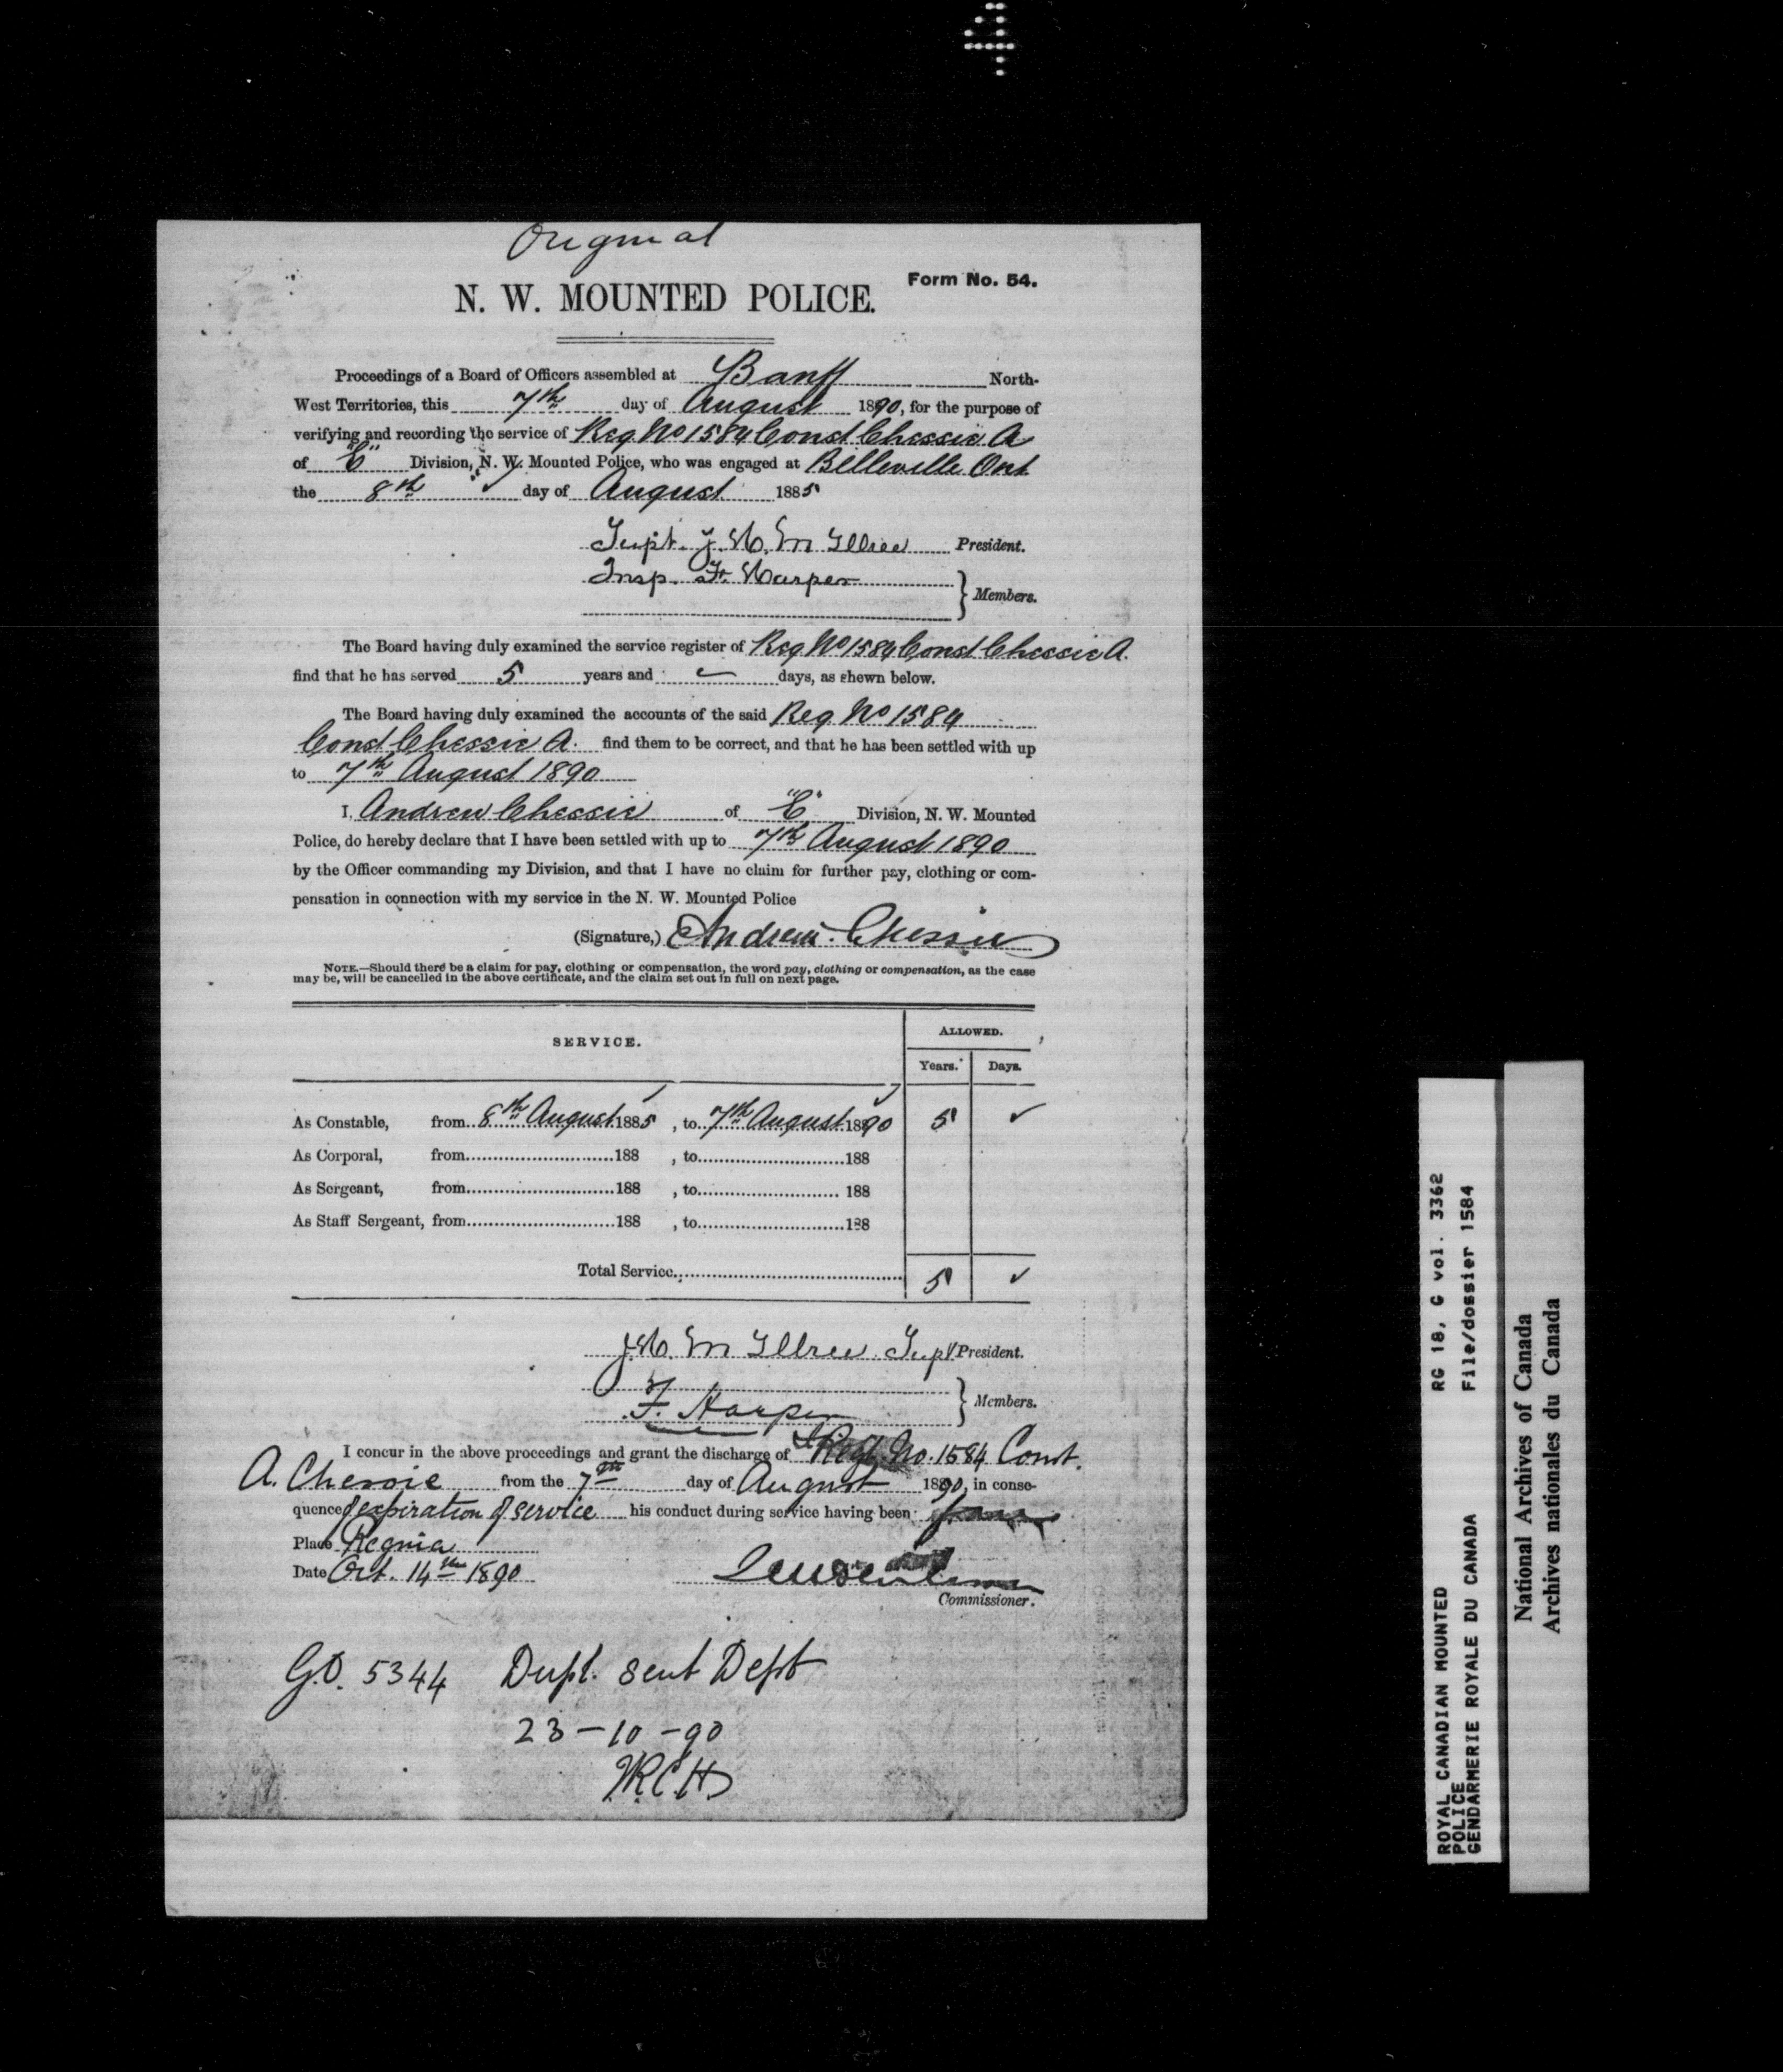 4
Original
Form No. 54.
N. W. MOUNTED POLICE.
Proceedings of a Board of Officers assembled at Banff North-
West Territories, this 7th day of August 1890, for the purpose of
verifying and recording the service of Reg No 1584 Const Chessie A
of "E" Division, N. W. Mounted Police, who was engaged at Belleville Ont
the 8th day of August 1885
Supt. J. H. McIllree President.
Insp. F. Harper
Members.
The Board having duly examined the service register of Reg No 1584 Const Chessie A.
find that he has served 5 years and days, as shewn below.
The Board having duly examined the accounts of the said Reg. No 1584
Const. Chessie A. find them to be correct, and that he has been settled with up
to 7th August 1890
I, Andrew Chessie of "E" Division, N. W. Mounted
Police, do hereby declare that I have been settled with up to 7th August 1890
by the Officer commanding my Division, and that I have no claim for further pay, clothing or com-
pensation in connection with my service in the N. W. Mounted Police
(Signature,) Andrew Chessie
NOTE.—Should there be a claim for pay, clothing or compensation, the word pay, clothing or compensation, as the case
may be, will be cancelled in the above certificate, and the claim set out in full on next page.
SERVICE.
ALLOWED.
Years. Days.
As Constable, from 8th August 1885, to 7th August 1890 5 ✓
As Corporal, from 188 , to 188
As Sergeant, from 188 , to 188
As Staff Sergeant, from 188 , to 188
Total Service 5 ✓
J. H. McIllree Supt President.
F. Harper
Members.
I concur in the above proceedings and grant the discharge of Regt. No. 1584 Const.
A. Chessie from the 7th day of August 1890, in conse-
quence of expiration of service his conduct during service having been
Place Regina
Date Oct. 14th 1890
Commissioner.
G.O. 5344 Dupl. sent Dept
23-10-90
ROYAL CANADIAN MOUNTED RG 18, G vol. 3362
POLICE
GENDARMERIE ROYALE DU CANADA File/dossier 1584
National Archives of Canada
Archives nationales du Canada